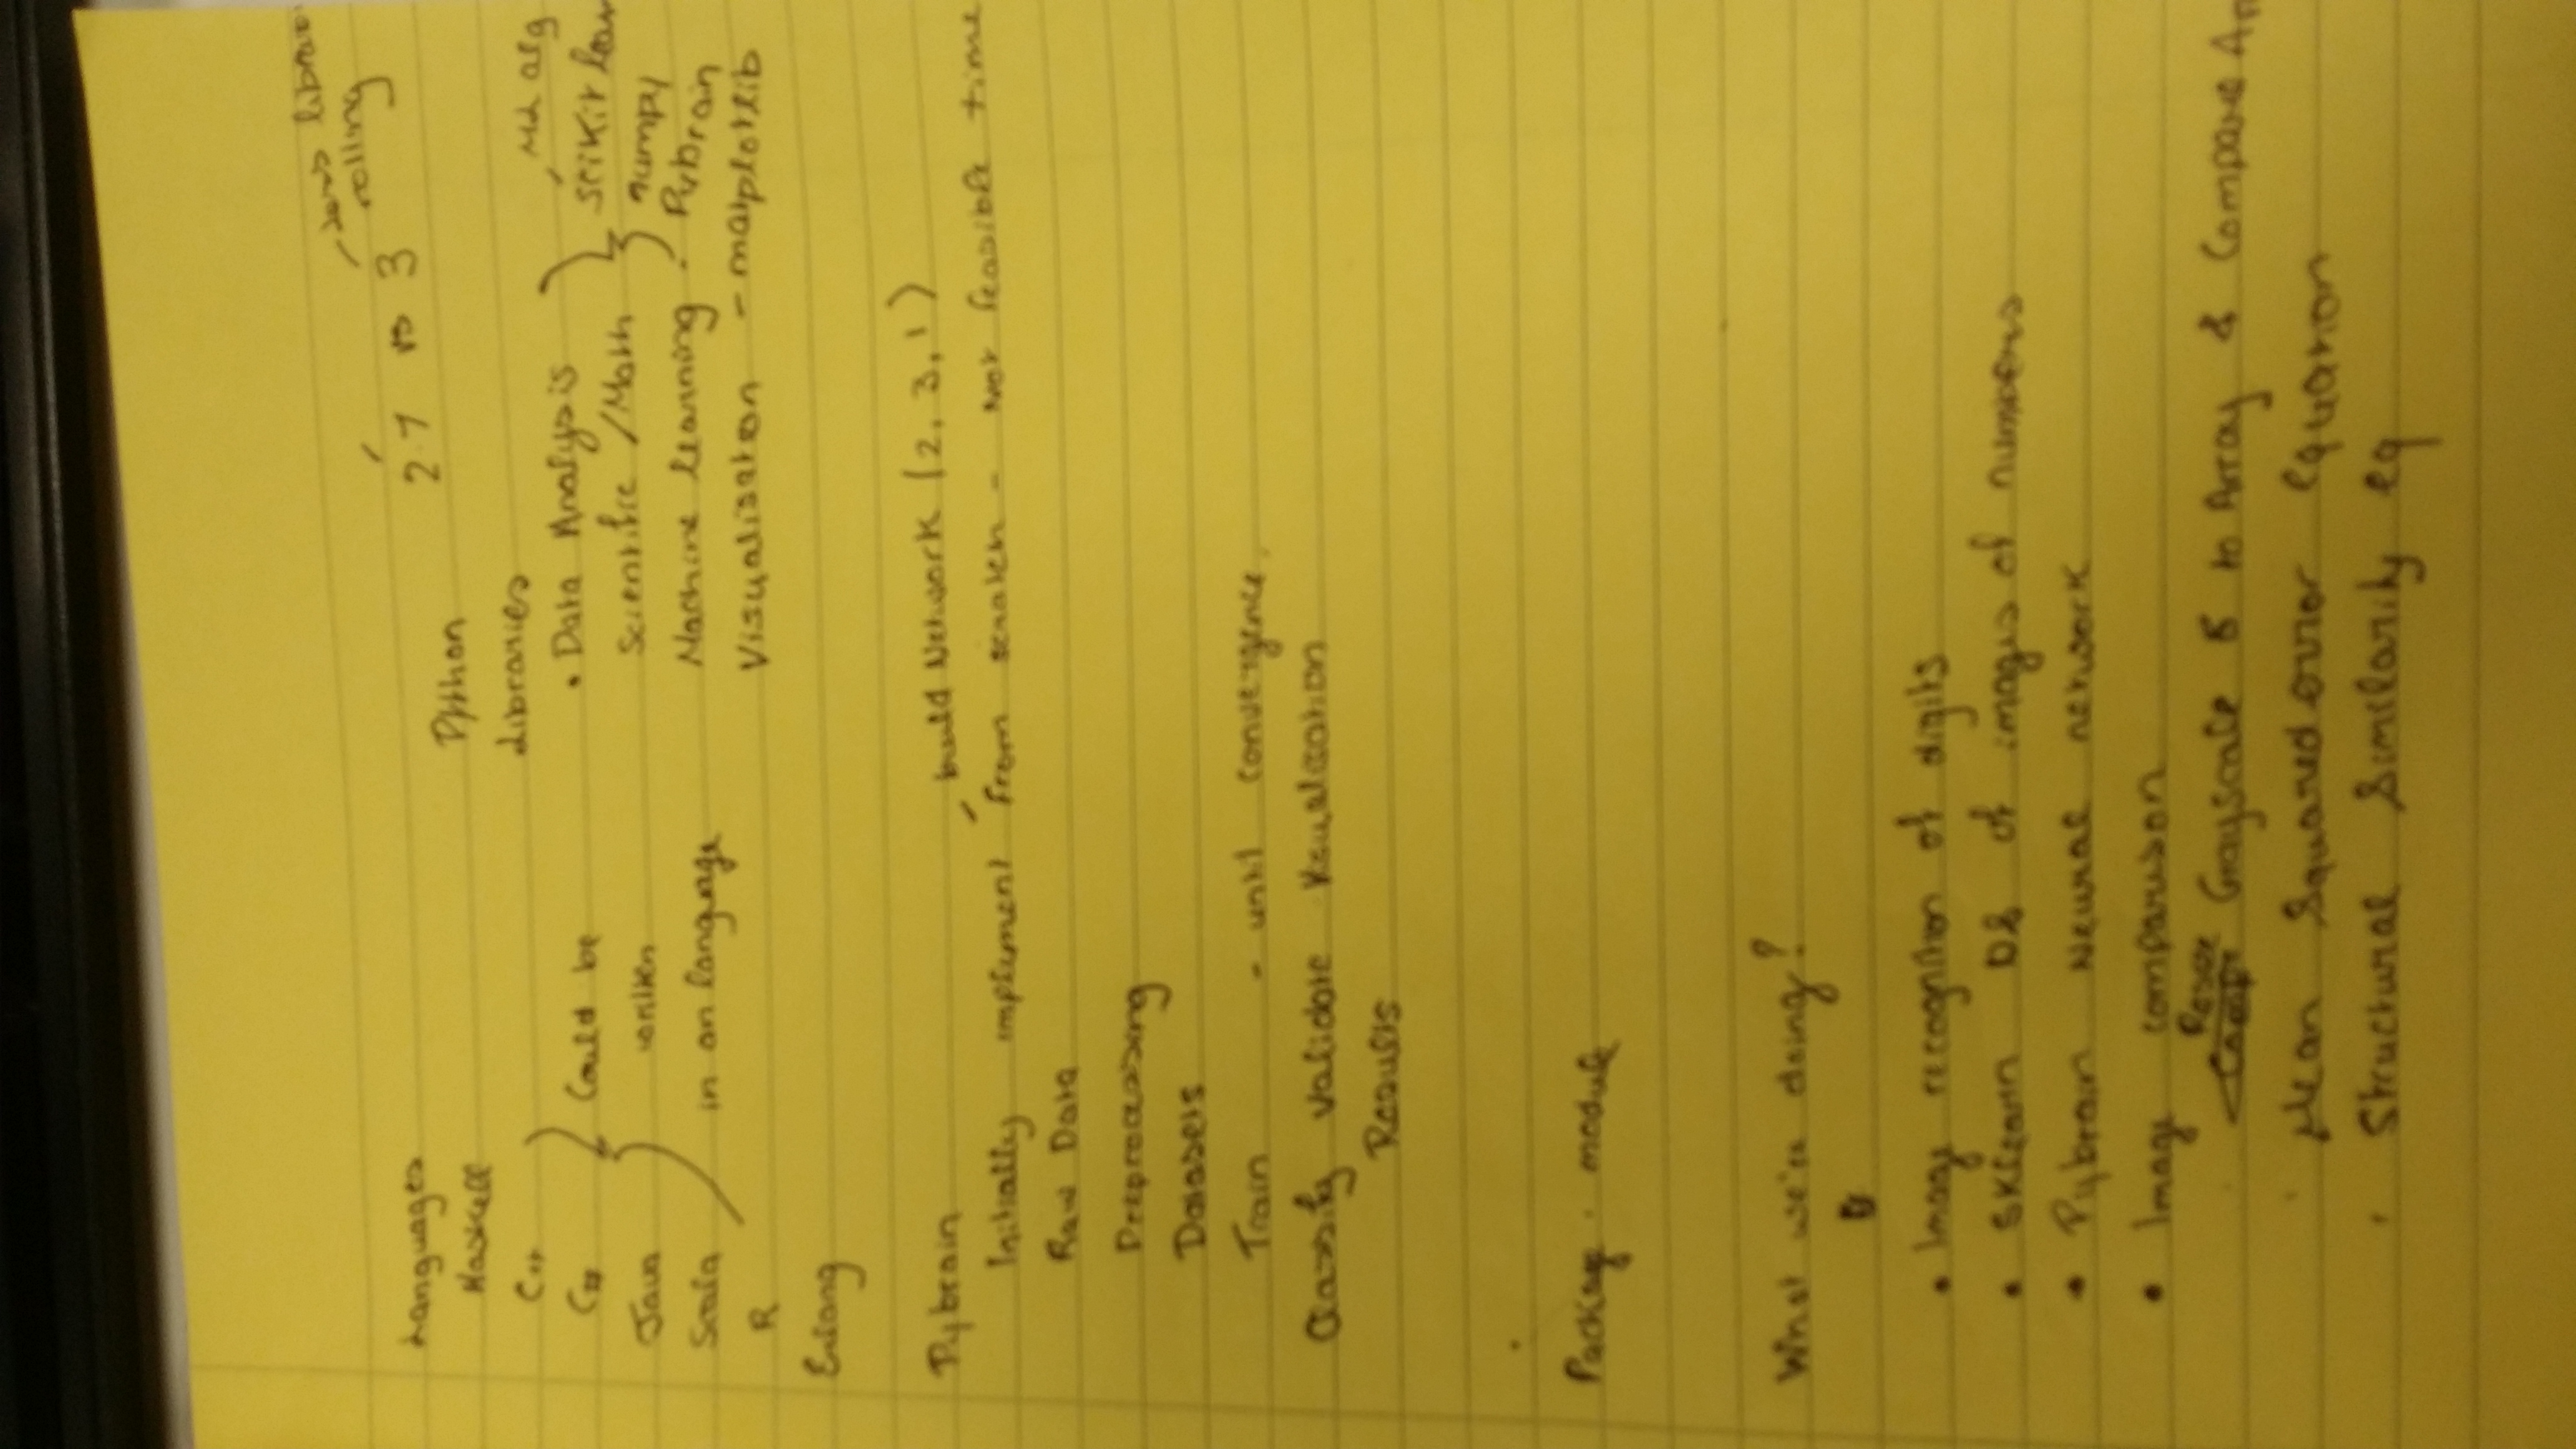 Languages
Haskell
C++
C#
Java
Scala
R
Erlang
Could be
written
in an language
2.7 vs 3
less librar
rolling
Python
Libraries
• Data Analysis
Scientific / Math
Machine learning
Visualisation - matplotlib
ML alg
Scikit lear
numpy
Pybrain
Pybrain
build Network (2, 3, 1)
Initially implement from scratch - not feasible time
Raw Data
Preprocessing
Datasets
Train - until convergence.
Classify Validate Visualisation
Results
Package . module
What we're doing?
• Image recognition of digits
• SKlearn DB of images of numbers
• Pybrain Neural network
• Image comparison
Resize
Grayscale to Array & Compare Ar
Mean Squared error equation
Structural Similarity eq